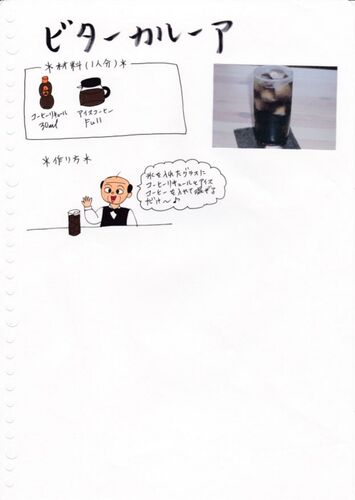 ビターカルーア
*材料(1人分)*
コーヒーリキュール
30ml
アイスコーヒー
Full
*作り方*
氷を入れたグラスに
コーヒーリキュールとアイス
コーヒーを入れて混ぜる
だけ〜♪